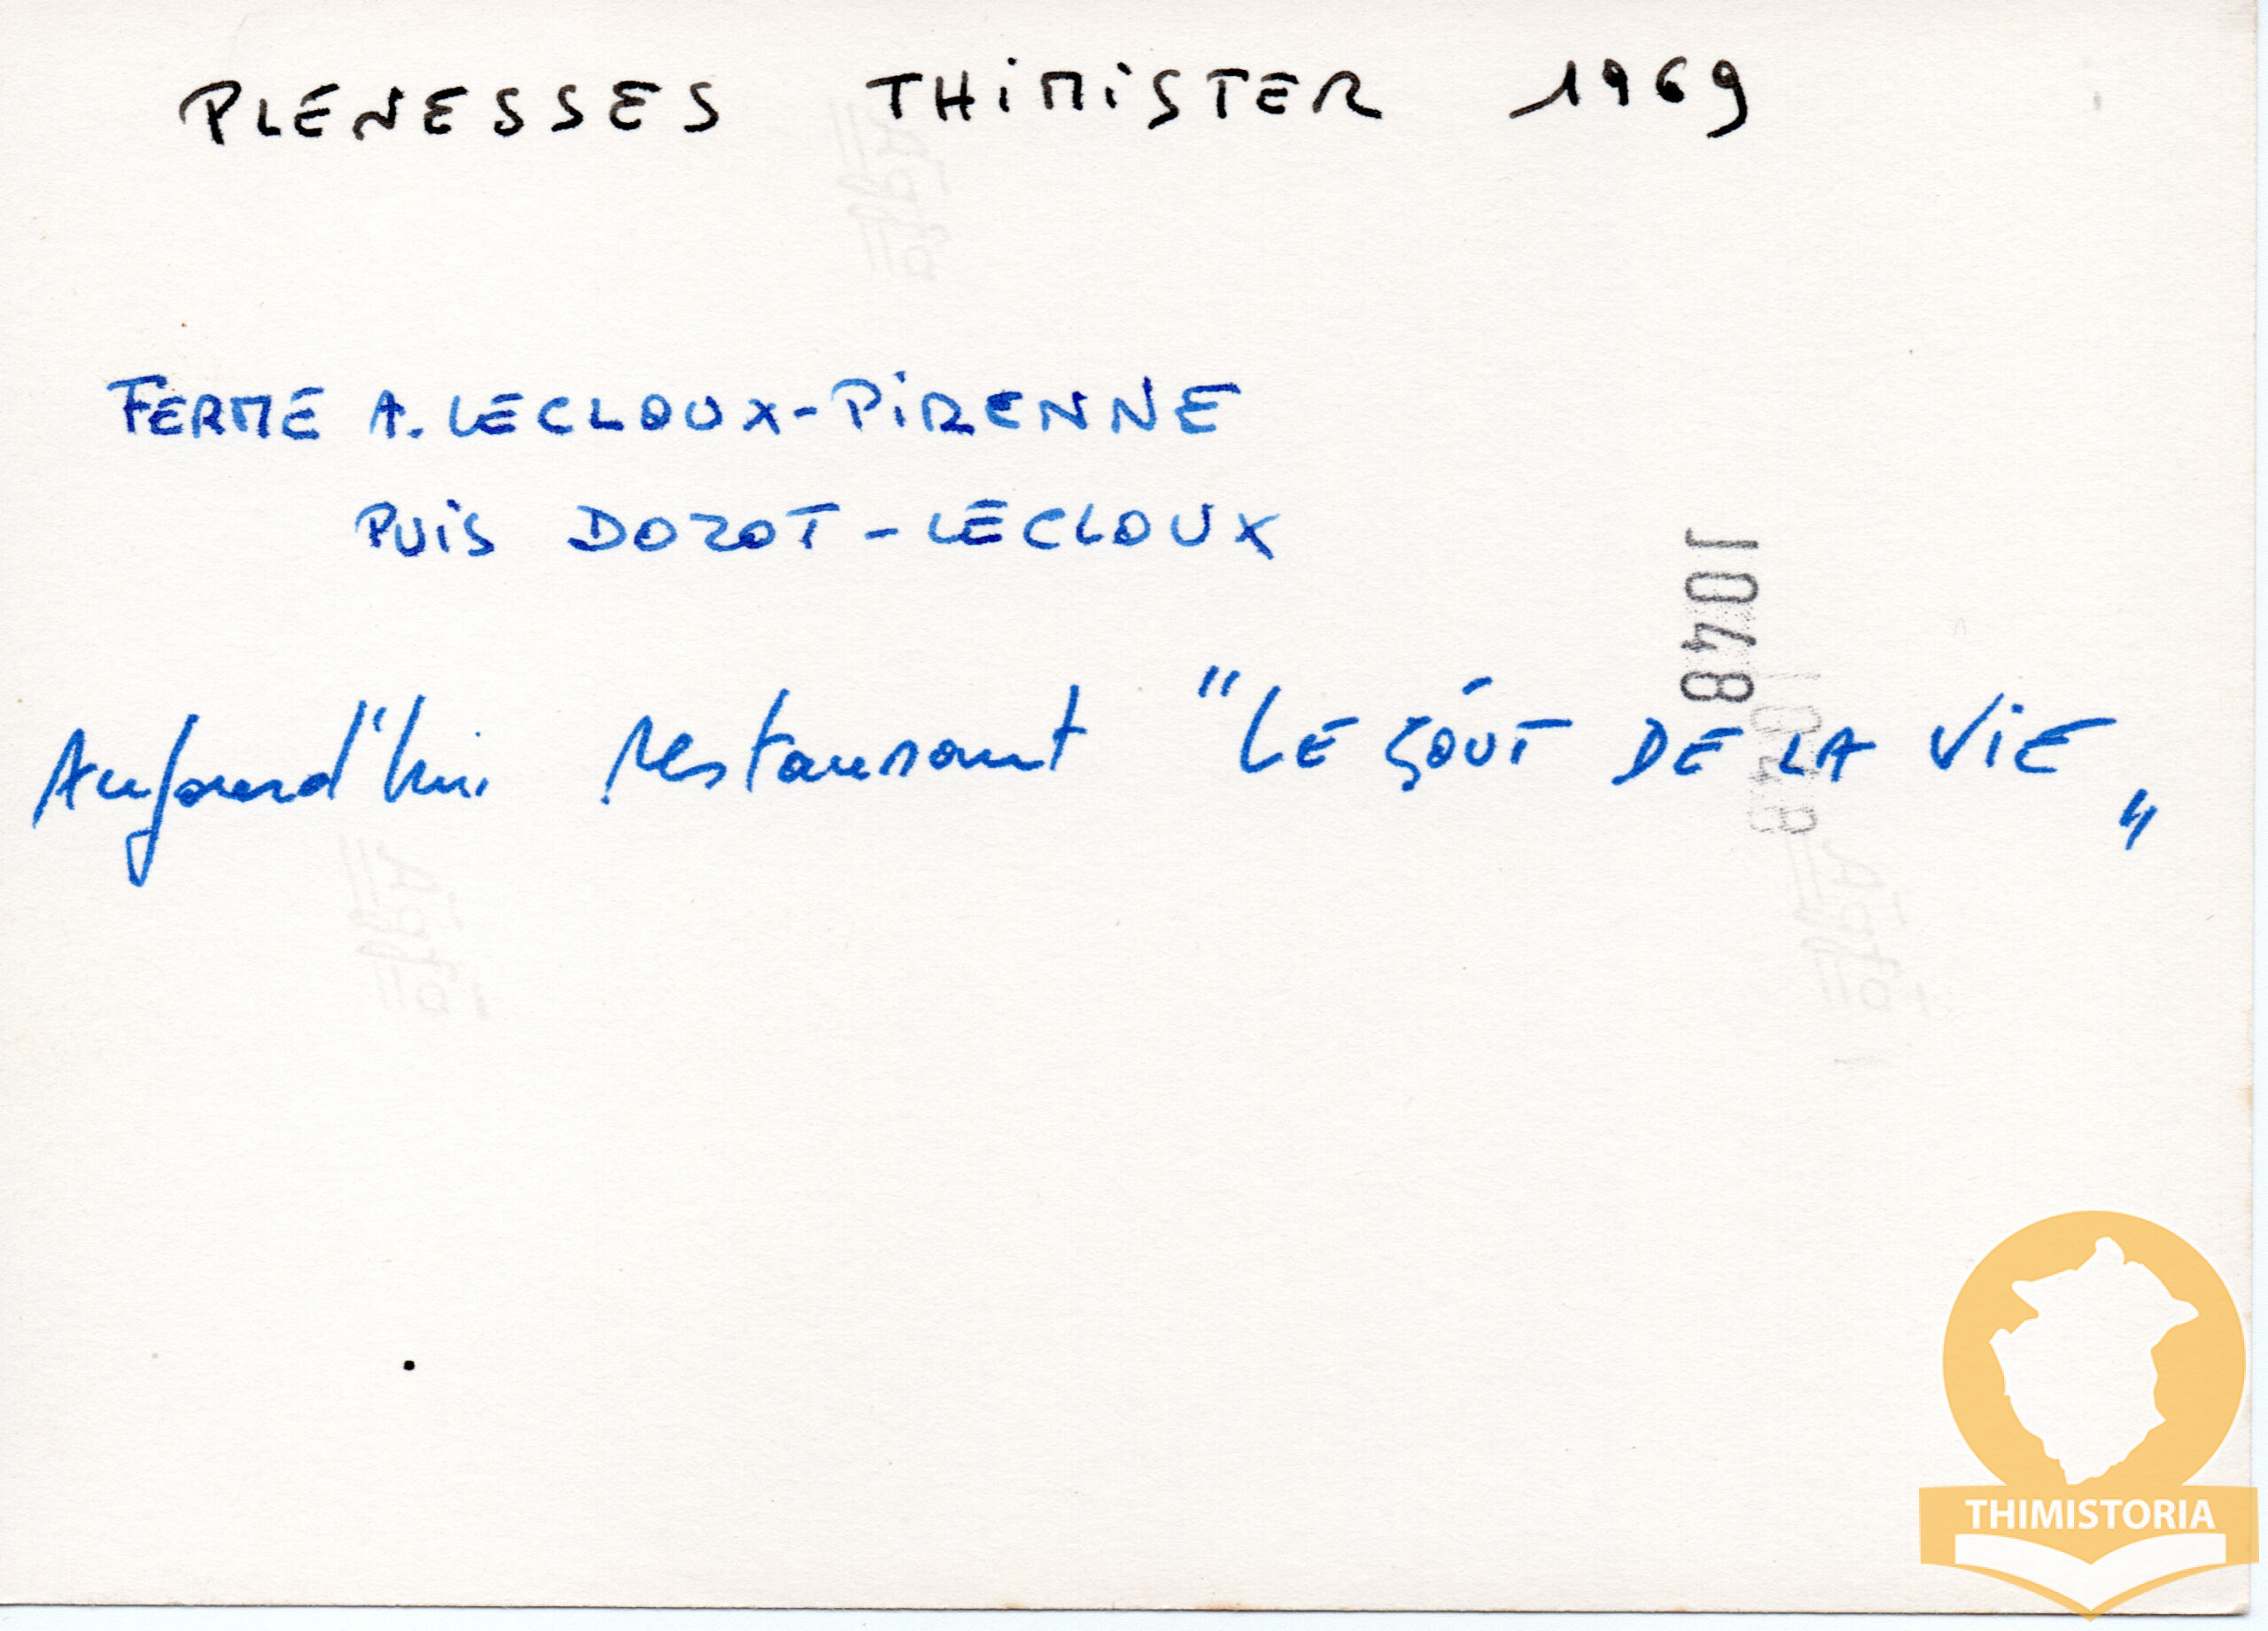 PLENESSES THIMISTER 1969
FERME A. LECLOUX-PIRENNE
PUIS DOZOT-LECLOUX
1048
Aujourd'hui restaurant "LE GOÛT DE LA VIE"
1048
THIMISTORIA